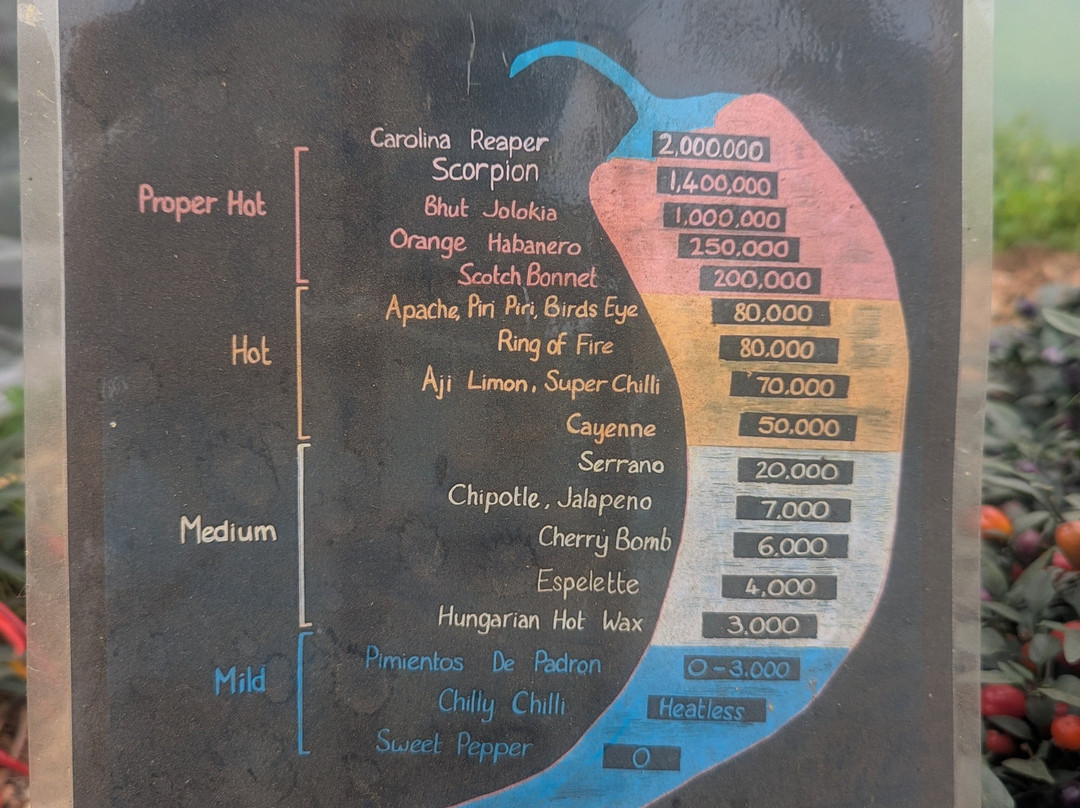 Carolina Reaper 2,000,000
Scorpion 1,400,000
Proper Hot
Bhut Jolokia 1,000,000
Orange Habanero 250,000
Scotch Bonnet 200,000
Apache, Piri Piri, Birds Eye 80,000
Hot
Ring of Fire 80,000
Aji Limon, Super Chilli 70,000
Cayenne 50,000
Serrano 20,000
Chipotle, Jalapeno 7,000
Medium
Cherry Bomb 6,000
Espelette 4,000
Hungarian Hot Wax 3,000
Pimientos De Padron 0-3,000
Mild
Chilly Chilli Heatless
Sweet Pepper 0